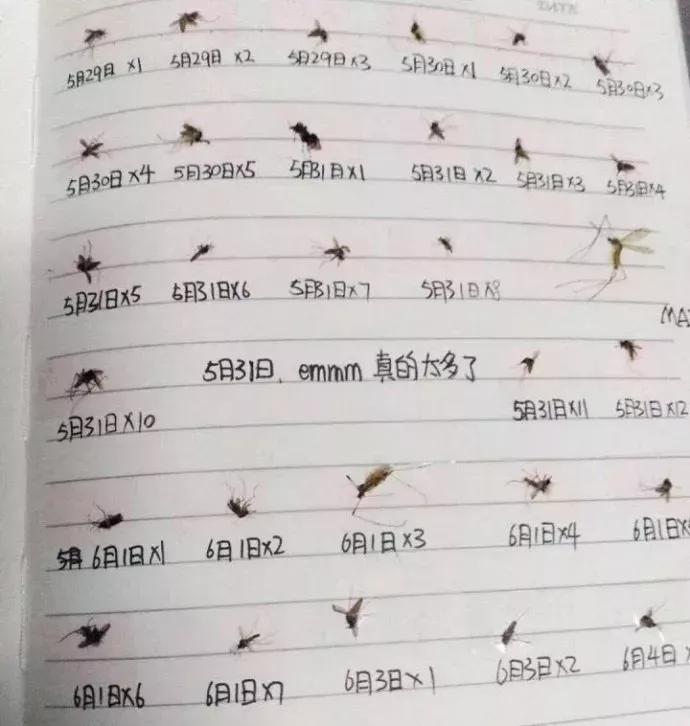 DATE
5月29日 x1 5月29日 x2 5月29日x3 5月30日x1 5月30日x2 5月30日x3
5月30日x4 5月30日x5 5月31日x1 5月31日x2 5月31日x3 5月31日x4
5月31日x5 5月31日x6 5月31日x7 5月31日x8
MAX
5月31日、emmm 真的太多了
5月31日x10 5月31日x11 5月31日x12
6月1日x1 6月1日x2 6月1日x3 6月1日x4 6月1日x
6月1日x6 6月1日x7 6月3日x1 6月3日x2 6月4日x